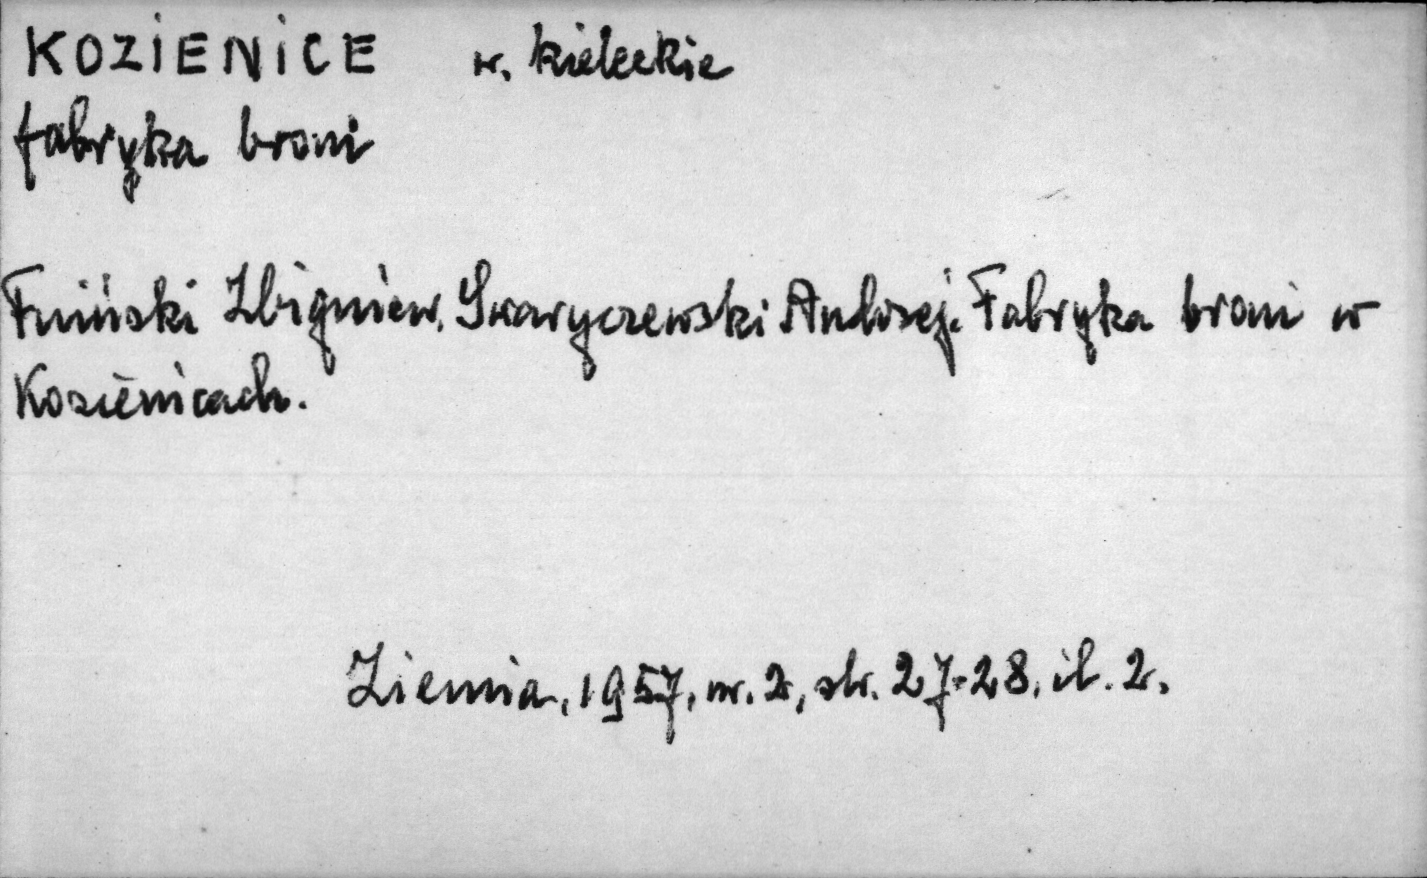 KOZIENICE w. kieleckie
fabryka broni
Fuiński Zbigniew, Swaryczewski Andrzej. Fabryka broni w
Kozienicach.
Ziemia, 1957, nr. 2, str. 27-28, il. 2.